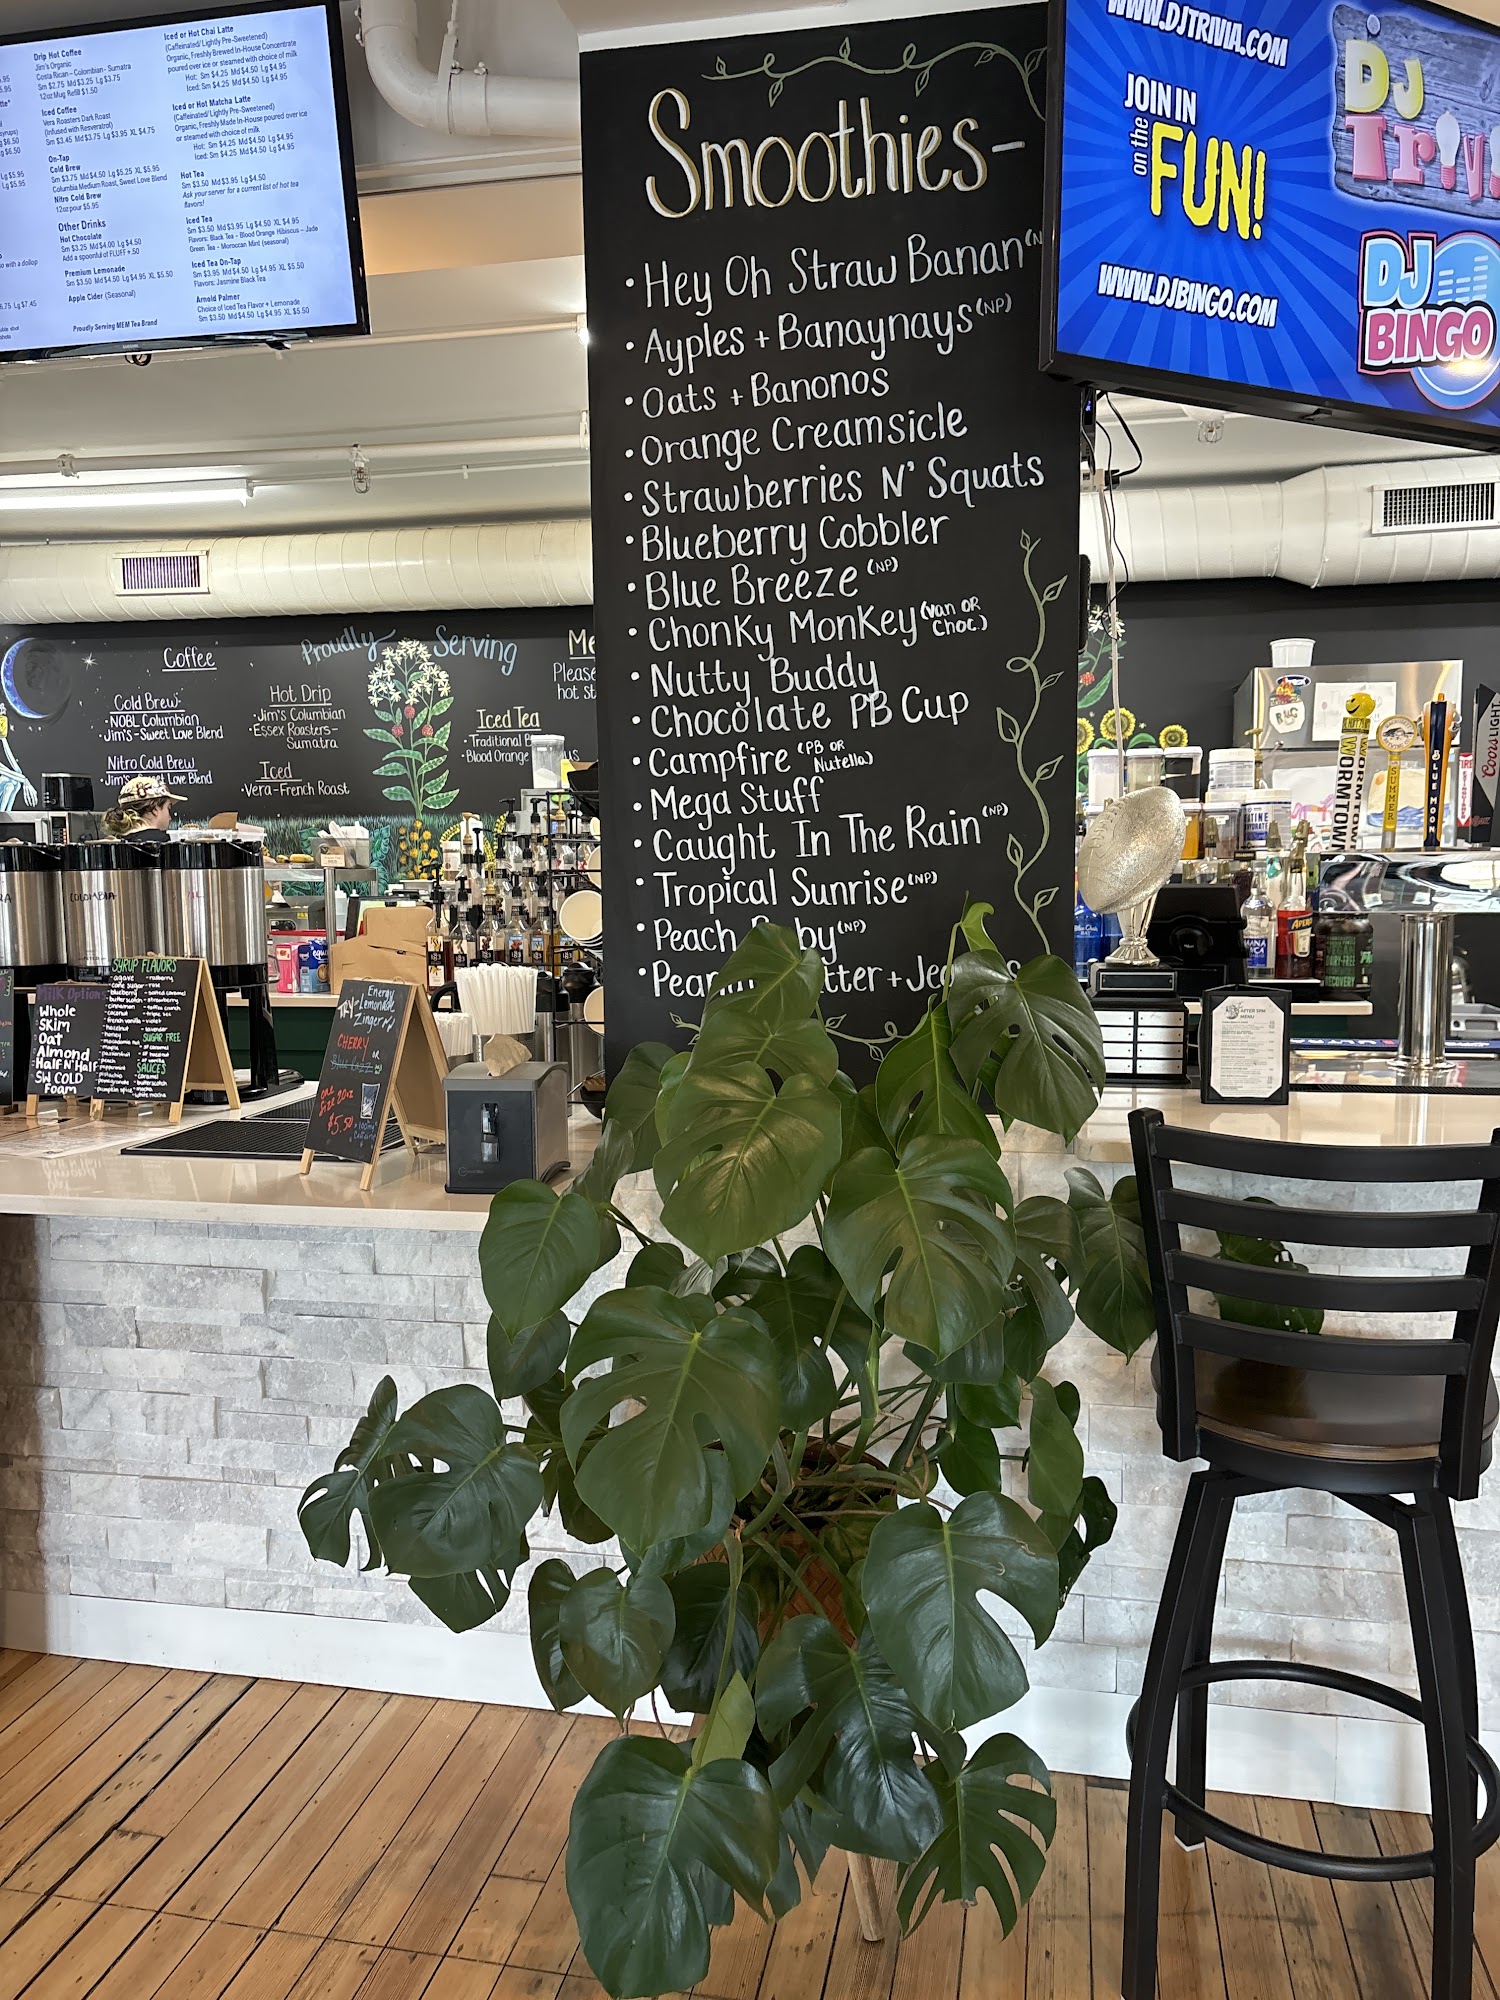 Drip Hot Coffee
Jim's Organic
Costa Rican - Colombian - Sumatra
Sm $2.75 Md $3.25 Lg $3.75
12oz Mug Refill $1.50
Iced Coffee
Vera Roasters Dark Roast
(Infused with Resveratrol)
Sm $3.45 Md $3.75 Lg $3.95 XL $4.75
On-Tap
Cold Brew
Sm $3.75 Md $4.50 Lg $5.25 XL $5.95
Columbia Medium Roast, Sweet Love Blend
Nitro Cold Brew
12oz pour $5.95
Other Drinks
Hot Chocolate
Sm $3.25 Md $4.00 Lg $4.50
Add a spoonful of FLUFF + .50
Premium Lemonade
Sm $3.50 Md $4.50 Lg $4.95 XL $5.50
Apple Cider (Seasonal)
Proudly Serving MEM Tea Brand
Iced or Hot Chai Latte
(Caffeinated/ Lightly Pre-Sweetened)
Organic, Freshly Brewed In-House Concentrate
poured over ice or steamed with choice of milk
Hot: Sm $4.25 Md $4.50 Lg $4.95
Iced: Sm $4.25 Md $4.50 Lg $4.95
Iced or Hot Matcha Latte
(Caffeinated/ Lightly Pre-Sweetened)
Organic, Freshly Made In-House poured over ice
or steamed with choice of milk
Hot: Sm $4.25 Md $4.50 Lg $4.95
Iced: Sm $4.25 Md $4.50 Lg $4.95
Hot Tea
Sm $3.50 Md $3.95 Lg $4.50
Ask your server for a current list of hot tea
flavors!
Iced Tea
Sm $3.50 Md $3.95 Lg $4.50 XL $4.95
Flavors: Black Tea - Blood Orange Hibiscus - Jade
Green Tea - Moroccan Mint (seasonal)
Iced Tea On-Tap
Sm $3.95 Md $4.50 Lg $4.95 XL $5.50
Flavors: Jasmine Black Tea
Arnold Palmer
Choice of Iced Tea Flavor + Lemonade
Sm $3.50 Md $4.50 Lg $4.95 XL $5.50
Smoothies-
• Hey Oh Straw Banan
• Ayples + Banaynays (NP)
• Oats + Banonos
• Orange Creamsicle
• Strawberries N' Squats
• Blueberry Cobbler
• Blue Breeze (NP)
• Chonky Monkey (Van OR Choc.)
• Nutty Buddy
• Chocolate PB Cup
• Campfire (PB OR Nutella)
• Mega Stuff
• Caught In The Rain (NP)
• Tropical Sunrise (NP)
• Peach by (NP)
• tter + Je
WWW.DJTRIVIA.COM
JOIN IN
on the
FUN!
WWW.DJBINGO.COM
DJ
Triv
DJ
BINGO
Proudly Serving
Coffee
Cold Brew
• NOBL Columbian
• Jim's - Sweet Love Blend
Nitro Cold Brew
• Jim's Sweet Love Blend
Hot Drip
• Jim's Columbian
• Essex Roasters-
Sumatra
Iced
• Vera-French Roast
Iced Tea
• Traditional B
• Blood Orange
Please
hot st
Milk Options
Whole
Skim
Oat
Almond
Half N' Half
SW COLD
Foam
SYRUP FLAVORS
SUGAR FREE
SAUCES
TRY
Energy
Lemonade
Zinger
CHERRY
OR
$5.50
COLOMBIA
AFTER 5PM
MENU
WORMTOWN
SUMMER
BLUE MOON
Coors LIGHT